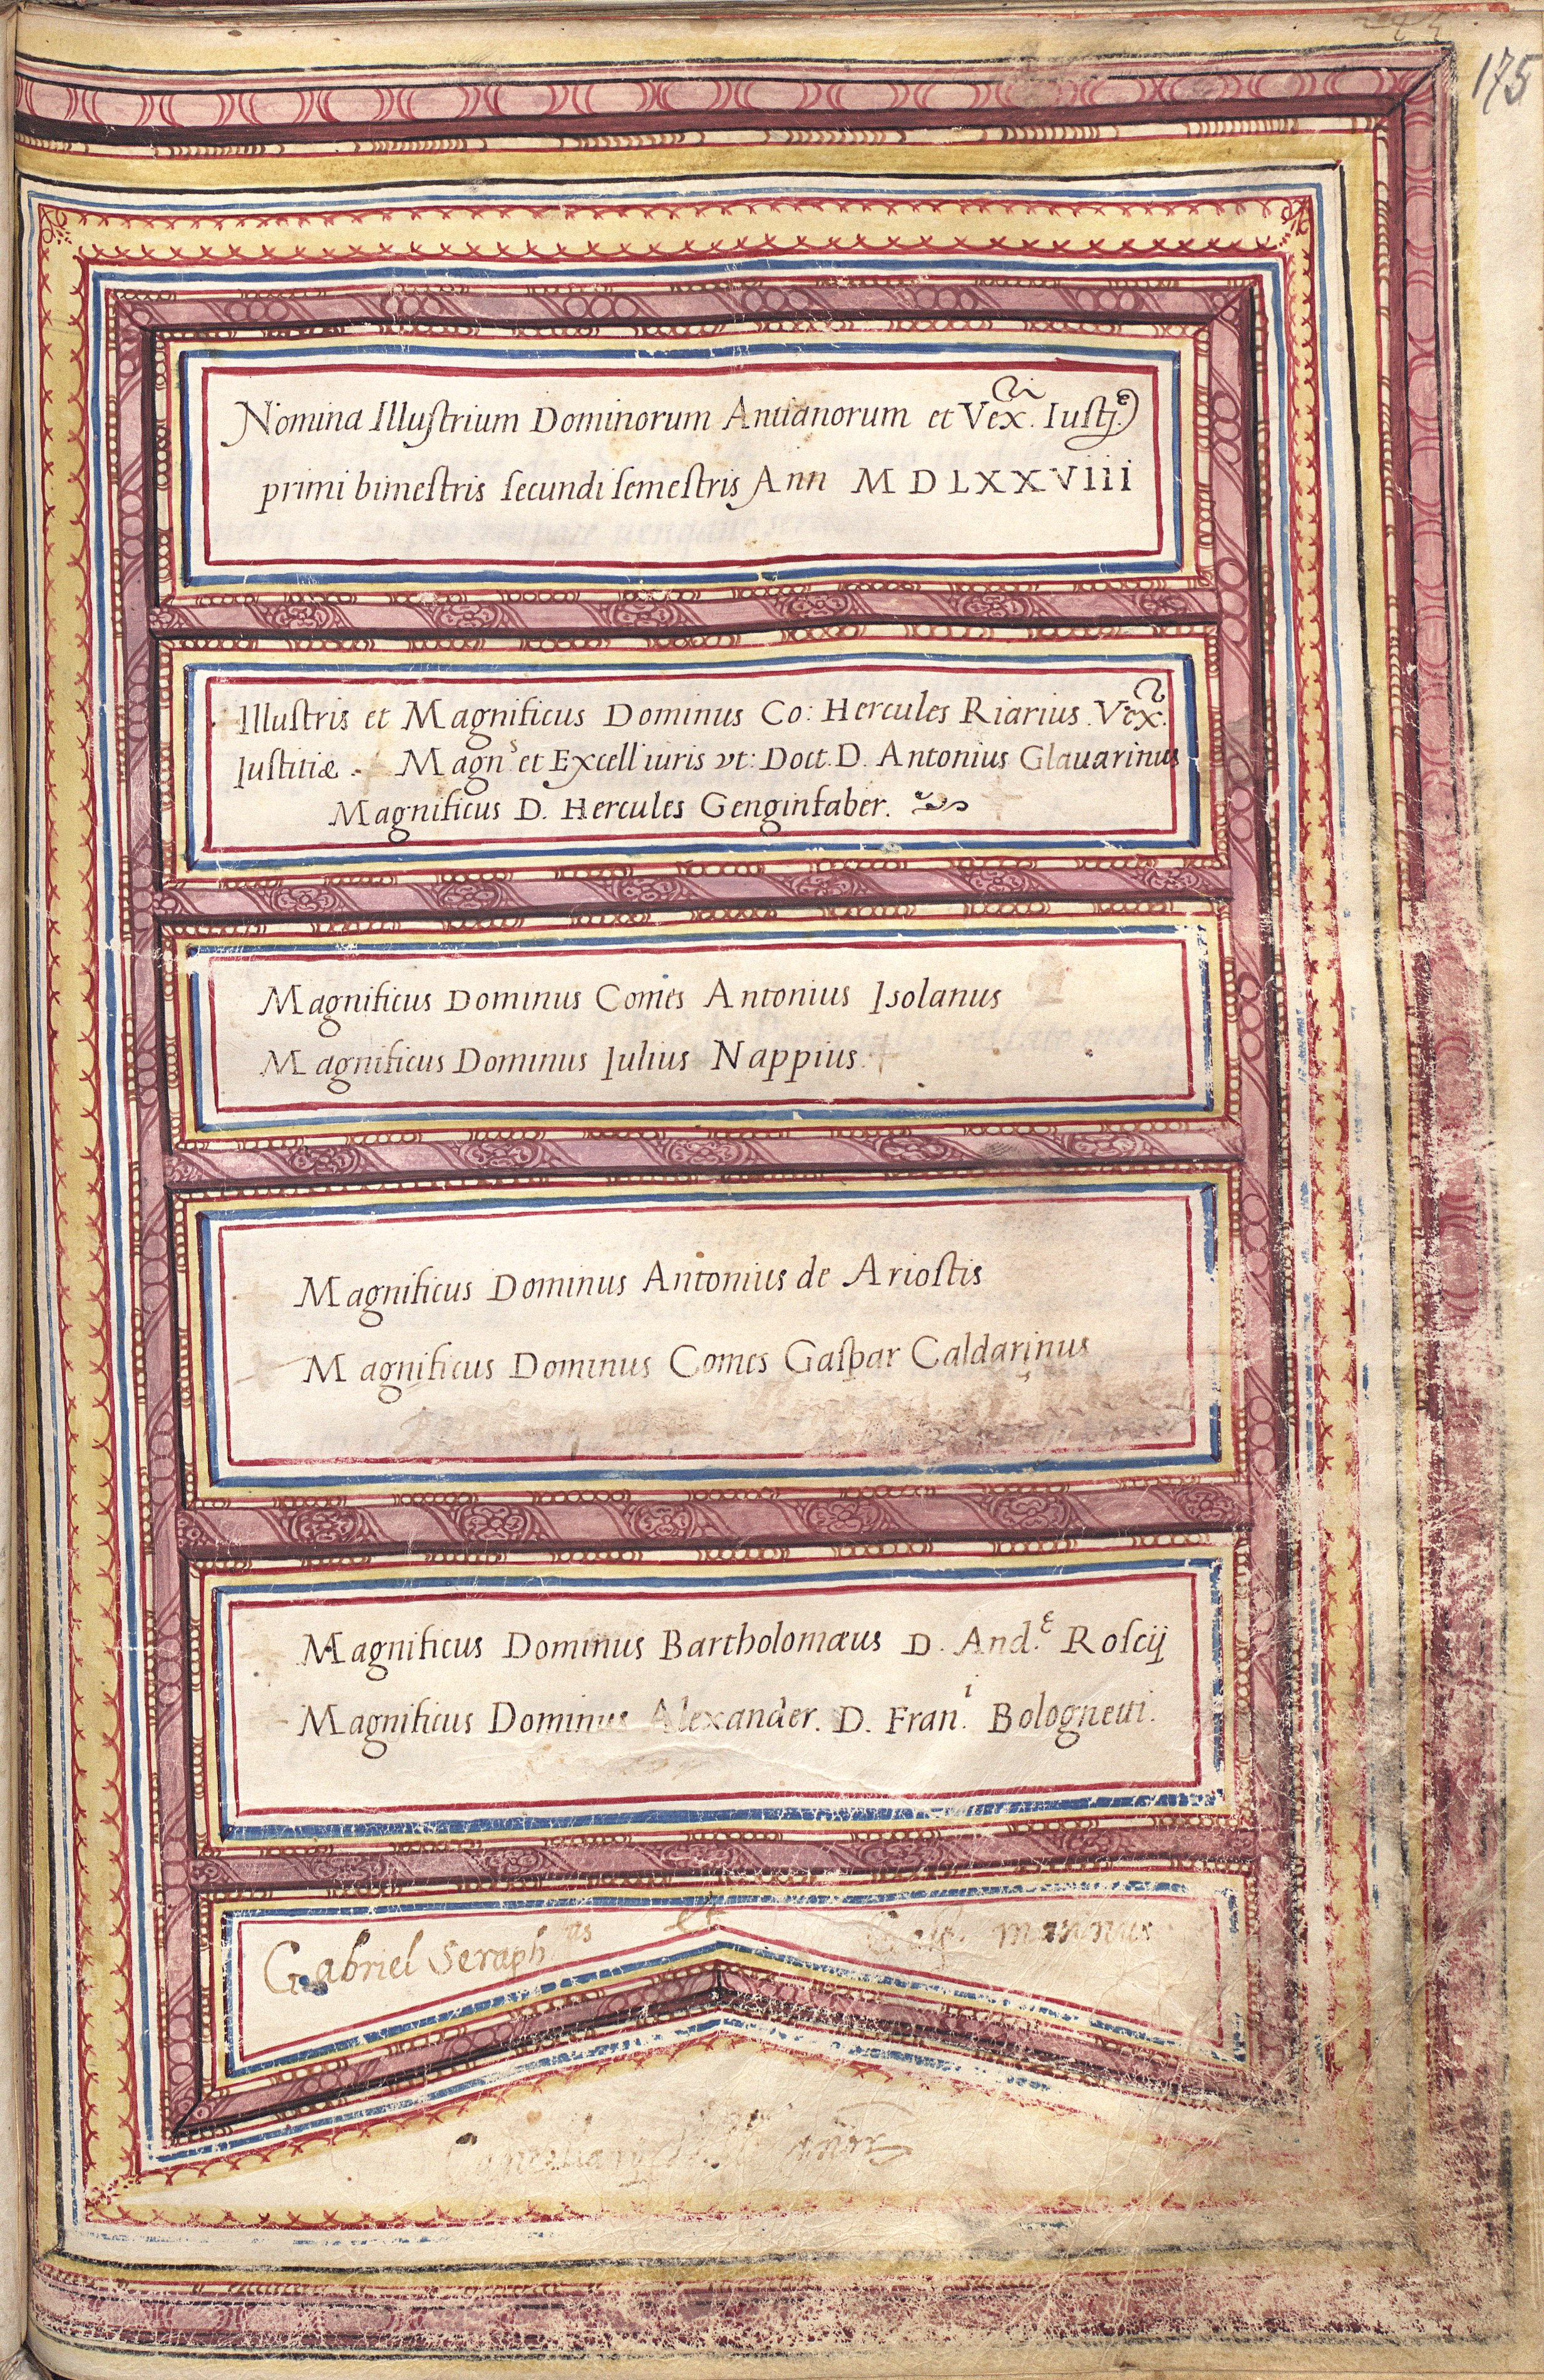 175
Nomina Illuſtrium Dominorum Antianorum et Vex. Iuſtj.
primi bimeſtris ſecundi ſemeſtris Ann MDLXXVIII
Illuſtris et Magnificus Dominus Co: Hercules Riarius Vex.
Iuſtitiæ. Magn.s et Excell iuris vt: Doct. D. Antonius Glauarinus
Magnificus D. Hercules Genginfaber.
Magnificus Dominus Comes Antonius Isolanus
Magnificus Dominus Iulius Nappius.
Magnificus Dominus Antonius de Arioſtis
Magnificus Dominus Comes Gaſpar Caldarinus
Magnificus Dominus Bartholomæus D. And.e Roſcij
Magnificus Dominus Alexander. D. Fran.i Bolognetti.
Gabriel Seraph et mannus